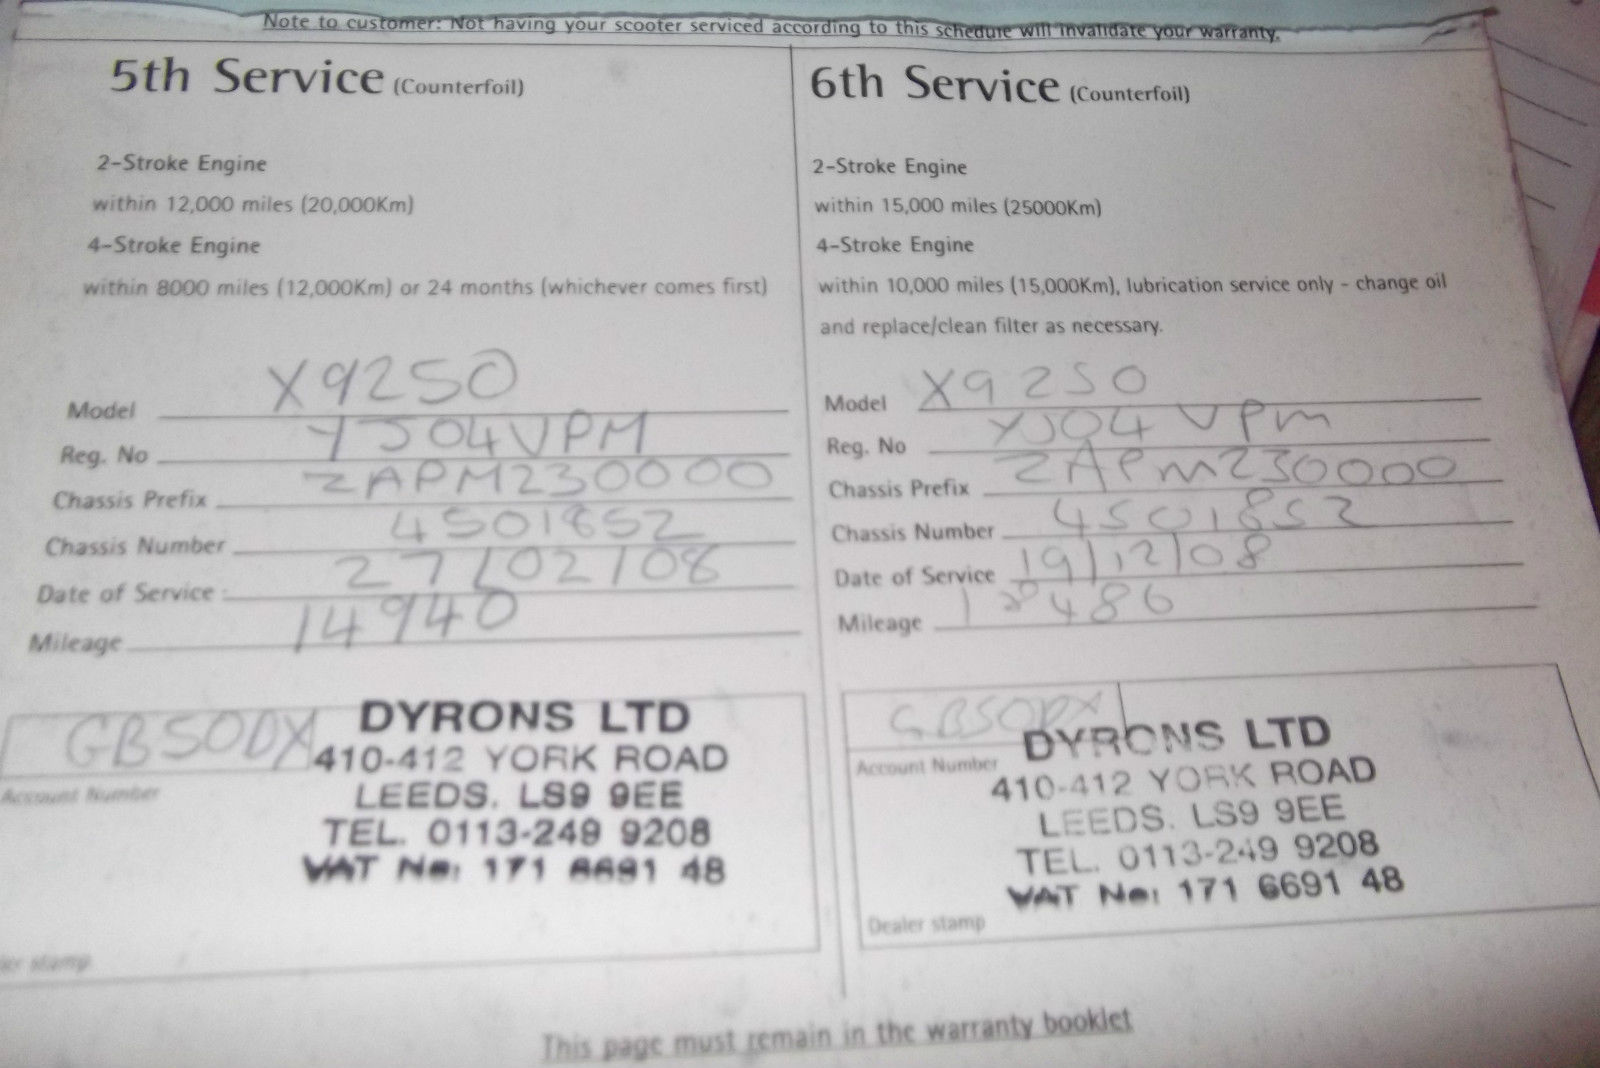 Note to customer: Not having your scooter serviced according to this schedule will invalidate your warranty.
5th Service (Counterfoil)
2-Stroke Engine
within 12,000 miles (20,000Km)
4-Stroke Engine
within 8000 miles (12,000Km) or 24 months (whichever comes first)
Model X9250
Reg. No YJ04VPM
Chassis Prefix ZAPM230000
Chassis Number 4501852
Date of Service : 27/02/08
Mileage 14940
GB50DX
Account Number
DYRONS LTD
410-412 YORK ROAD
LEEDS. LS9 9EE
TEL. 0113-249 9208
VAT No: 171 6691 48
stamp
6th Service (Counterfoil)
2-Stroke Engine
within 15,000 miles (25000Km)
4-Stroke Engine
within 10,000 miles (15,000Km), lubrication service only - change oil
and replace/clean filter as necessary.
Model X9 250
Reg. No YJ04 VPM
Chassis Prefix ZAPM230000
Chassis Number 4501852
Date of Service 19/12/08
Mileage
GB50DX
Account Number
DYRONS LTD
410-412 YORK ROAD
LEEDS. LS9 9EE
TEL. 0113-249 9208
VAT No: 171 6691 48
Dealer stamp
This page must remain in the warranty booklet